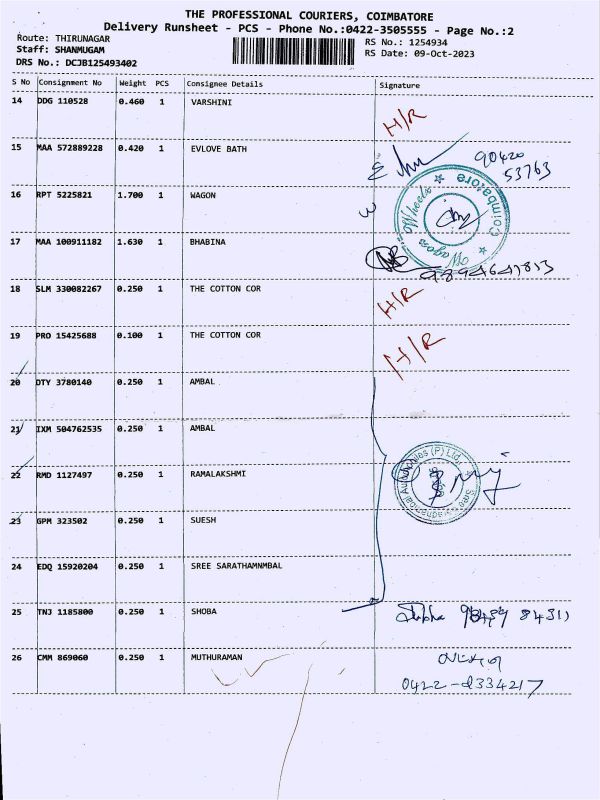 THE PROFESSIONAL COURIERS, COIMBATORE
Delivery Runsheet - PCS - Phone No.:0422-3505555 - Page No.:2
Route: THIRUNAGAR RS No.: 1254934
Staff: SHANMUGAM RS Date: 09-Oct-2023
DRS No.: DCJB125493402
S No Consignment No Weight PCS Consignee Details Signature
14 DDG 110528 0.460 1 VARSHINI H/R
15 MAA 572889228 0.420 1 EVLOVE BATH 90420
53763
16 RPT 5225821 1.700 1 WAGON
Wagon Wheels Coimbatore
17 MAA 100911182 1.630 1 BHABINA
18 SLM 330082267 0.250 1 THE COTTON COR H/R
19 PRO 15425688 0.100 1 THE COTTON COR H/R
20 OTY 3780140 0.250 1 AMBAL
21 IXM 504762535 0.250 1 AMBAL
22 RMD 1127497 0.250 1 RAMALAKSHMI
23 GPM 323502 0.250 1 SUESH
24 EDQ 15920204 0.250 1 SREE SARATHAMNMBAL
25 TNJ 1185800 0.250 1 SHOBA
26 CMM 869060 0.250 1 MUTHURAMAN